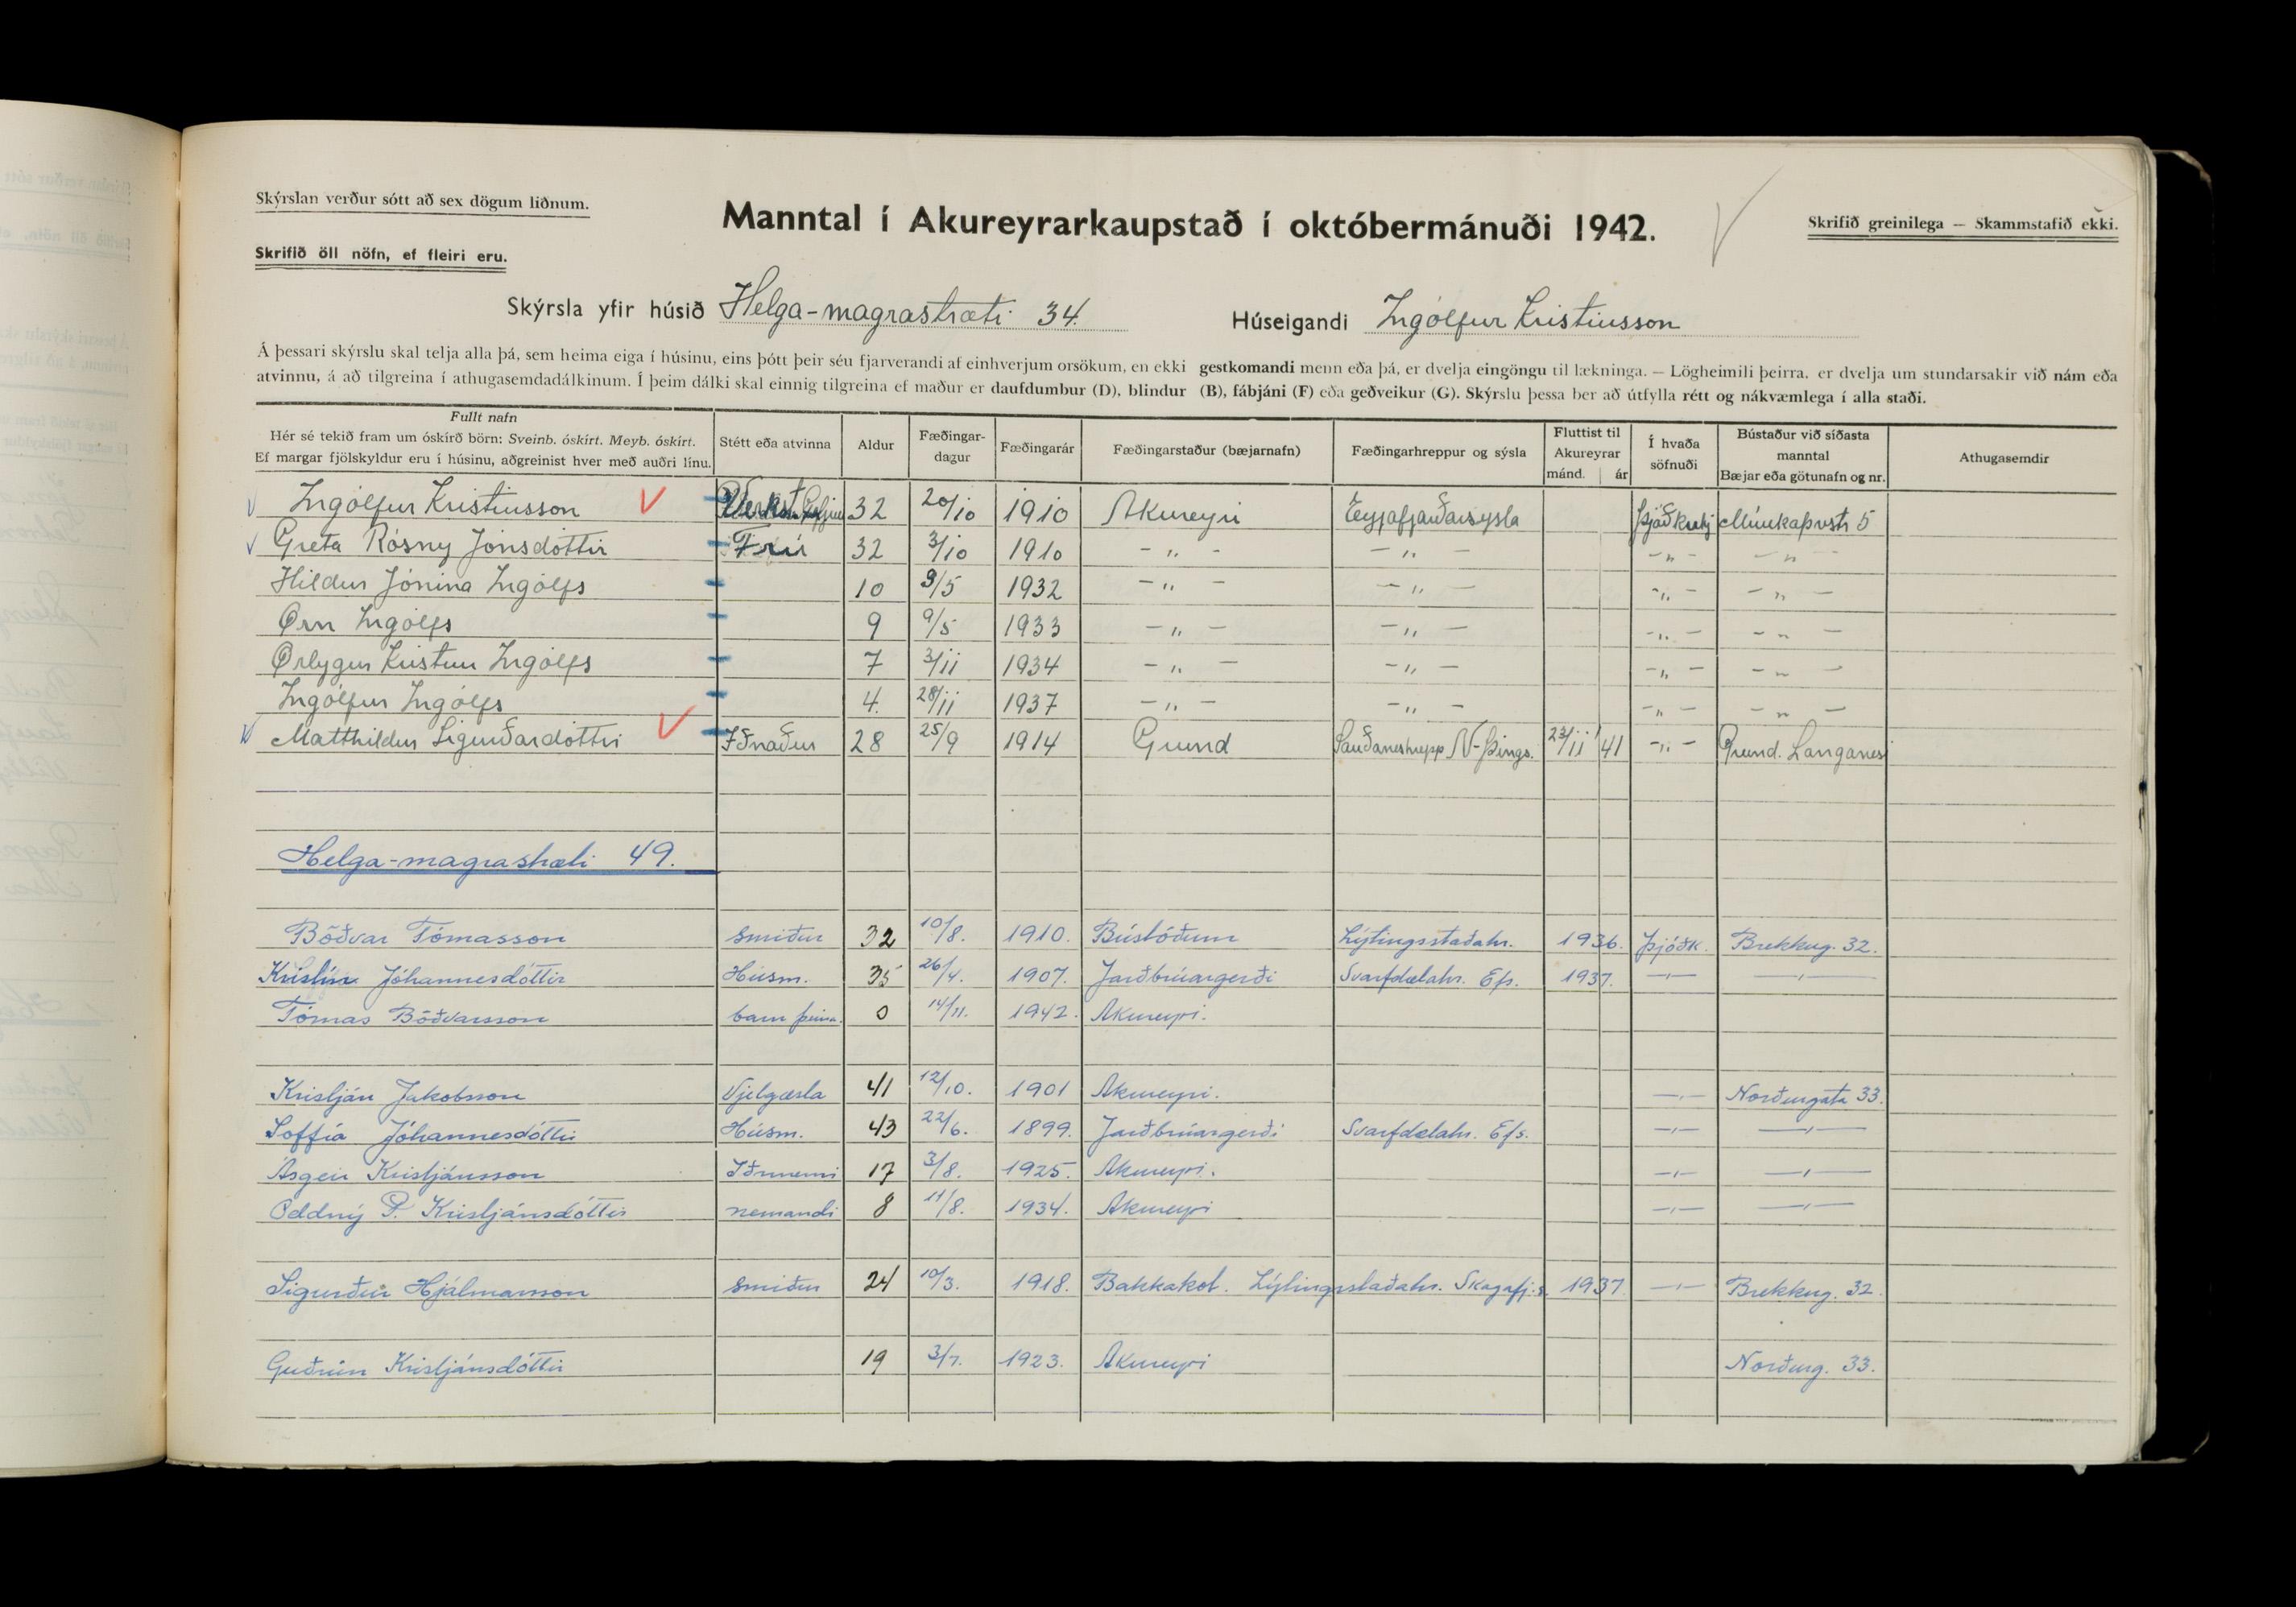 Skýrslan verður sótt að sex dögum liðnum.
Skrifið öll nöfn, ef fleiri eru.
Manntal í Akureyrarkaupstað í októbermánuði 1942.
Skrifið greinilega — Skammstafið ekki.
Skýrsla yfir húsið Helga-magrastræti 34.
Húseigandi Ingólfur Kristinsson
Á þessari skýrslu skal telja alla þá, sem heima eiga í húsinu, eins þótt þeir séu fjarverandi af einhverjum orsökum, en ekki gestkomandi menn eða þá, er dvelja eingöngu til lækninga. — Lögheimili þeirra, er dvelja um stundarsakir við nám eða
atvinnu, á að tilgreina í athugasemdadálkinum. Í þeim dálki skal einnig tilgreina ef maður er daufdumbur (D), blindur (B), fábjáni (F) eða geðveikur (G). Skýrslu þessa ber að útfylla rétt og nákvæmlega í alla staði.
Fullt nafn
Hér sé tekið fram um óskírð börn: Sveinb. óskírt. Meyb. óskírt.
Ef margar fjölskyldur eru í húsinu, aðgreinist hver með auðri línu.
Stétt eða atvinna
Aldur
Fæðingar-
dagur
Fæðingarár
Fæðingarstaður (bæjarnafn)
Fæðingarhreppur og sýsla
Fluttist til
Akureyrar
mánd. ár
Í hvaða
söfnuði
Bústaður við síðasta
manntal
Bæjar eða götunafn og nr.
Athugasemdir
Ingólfur Kristinsson 32 20/10 1910 Akureyri Eyjafjarðarsýsla Þjóðkirkj
Greta Rósny Jónsdóttir Frú 32 3/10 1910 -"- -"- -"- -"-
Hildur Jónina Ingólfs 10 9/5 1932 -"- -"- -"- -"-
Örn Ingólfs 9 9/5 1933 -"- -"- -"- -"-
Örlygur Kristinn Ingólfs 7 3/11 1934 -"- -"- -"- -"-
Ingólfur Ingólfs 4. 28/11 1937 -"- -"- -"- -"-
Matthildur Sigurðardóttir Iðnaður 28 25/9 1914 Grund Sauðaneshrepp N-Þings. 23/11 '41 -"- Grund. Langanesi
Helga-magrastræti 49.
Böðvar Tómasson smiður 32 10/8. 1910. Bústöðum Lýtingsstaðahr. 1936. Þjóðk. Brekkug. 32.
Kristín Jóhannesdóttir Húsm. 35 26/4. 1907. Jarðbrúargerði Svarfdælahr. Efs. 1937. -"- -"-
Tómas Böðvarsson barn þeirra. 0 14/11. 1942. Akureyri.
Kristján Jakobsson Vjelgæsla 41 12/10. 1901 Akureyri. -"- Norðurgata 33.
Soffía Jóhannesdóttir Húsm. 43 22/6. 1899. Jarðbrúargerði Svarfdælahr. Efs. -"- -"-
Ásgeir Kristjánsson Iðnnemi 17 3/8. 1925. Akureyri. -"- -"-
Oddný P. Kristjánsdóttir nemandi 8 11/8. 1934. Akureyri -"- -"-
Sigurður Hjálmarsson smiður 24 10/3. 1918. Bakkakot. Lýtingsstaðahr. Skagafj.s. 1937. -"- Brekkug. 32.
Guðrún Kristjánsdóttir 19 3/7. 1923. Akureyri Norðurg. 33.